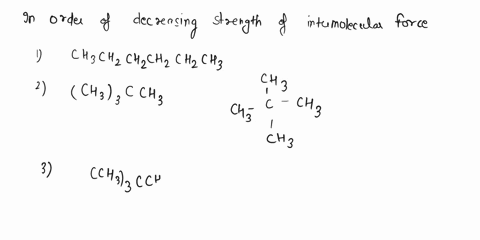 In order of decreasing strength of intermolecular force
1) CH3CH2CH2CH2CH2CH3
2) (CH3)3CCH3
CH3
CH3 - C - CH3
CH3
3) (CH3)3CCH